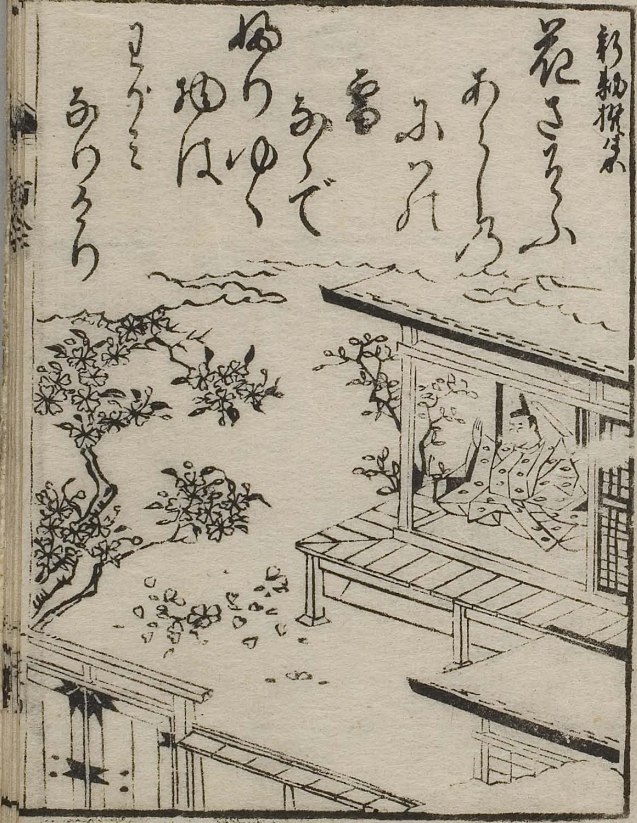 新勅撰集
花さそふ
あらしの
にはの
雪
ならで
ふりゆく
物は
わがみ
なりけり